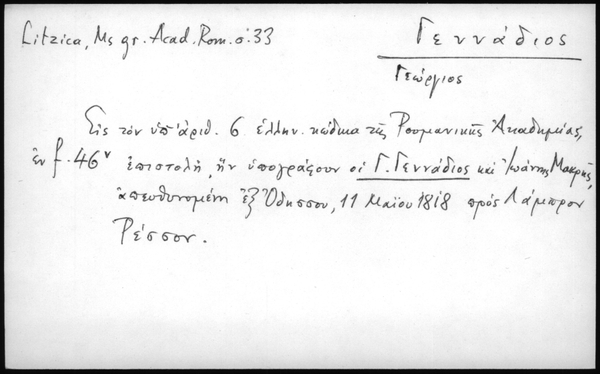 Litzica, Ms gr. Acad. Rom. σ. 33
Γεννάδιος
Γεώργιος
Εἰς τὸν ὑπ' ἀριθ. 6 ἑλλην. κώδικα τῆς Ρουμανικῆς Ἀκαδημίας,
ἐν f. 46ᵛ ἐπιστολή, ἣν ὑπογράφουν οἱ Γ. Γεννάδιος καὶ Ἰωάννης Μακρῆς,
ἀπευθυνομένη ἐξ Ὀδησσοῦ, 11 Μαΐου 1818 πρὸς Λάμπρον
Ρέσσον.